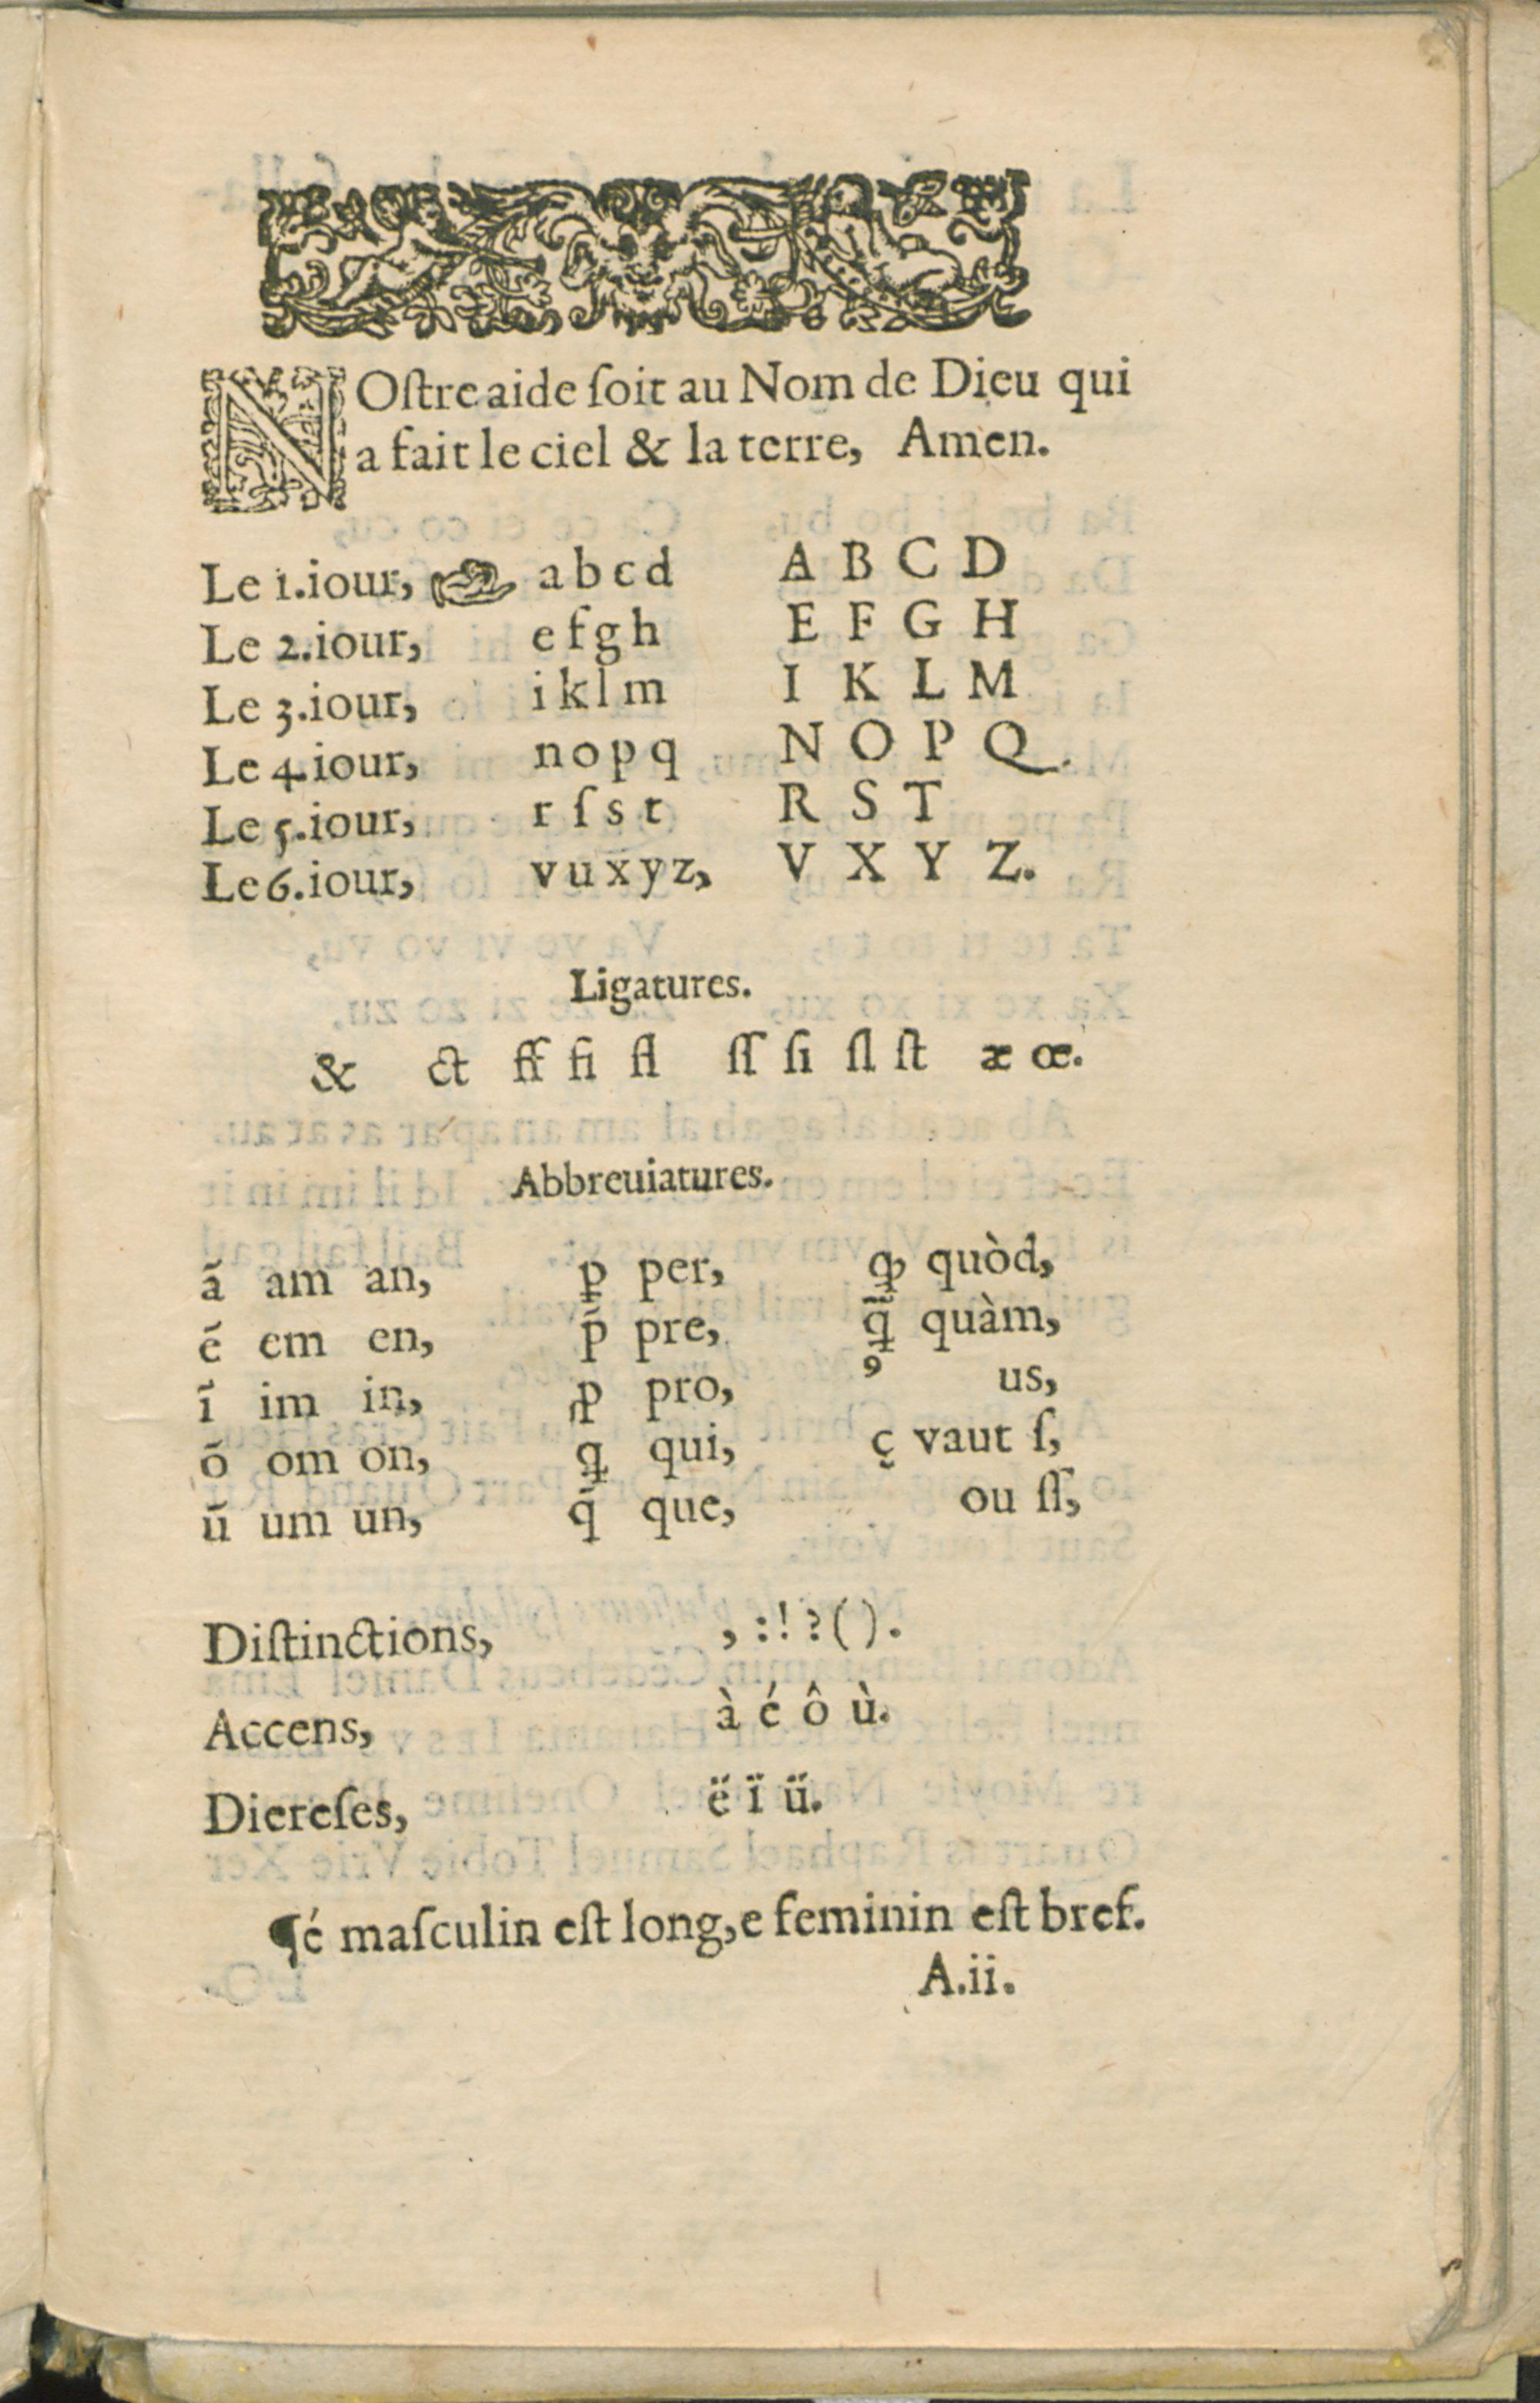 NOſtre aide ſoit au Nom de Dieu qui
a fait le ciel & la terre, Amen.
Le 1.iour, ☞ a b c d A B C D
Le 2.iour, e f g h E F G H
Le 3.iour, i k l m I K L M
Le 4.iour, n o p q N O P Q.
Le 5.iour, r ſ s t R S T
Le 6.iour, v u x y z, V X Y Z.
Ligatures.
& ct ff fi fl ſſ ſi ſl ſt æ œ.
Abbreuiatures.
ā am an, ꝑ per, ꝙ quòd,
ē em en, p̄ pre, ꝗ̃ quàm,
ī im in, ꝓ pro, ꝰ us,
ō om on, ꝗ qui, ç vaut ſ,
ū um un, q̄ que, ou ſſ,
Diſtinctions, , : ! ? ( ) .
Accens, à é ô ù.
Diereſes, ë ï ü.
¶é maſculin eſt long, e feminin eſt bref.
A.ii.